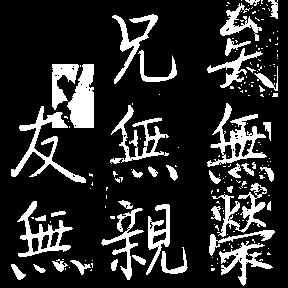 矣無榮
兄無親
友無